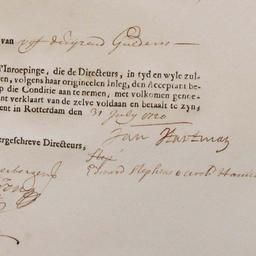 van vyf duysend Guldens
'Inroepinge, die de Directeurs, in tyd en wyle zul-
zen, volgens haar origineelen Inleg, den Acceptant be-
op die Conditie aan te nemen, met volkomen genoe-
ent verklaart van de zelve voldaan en betaalt te zyn;
ent in Rotterdam den 31 July 1720
Jan Hartman
ergeschreve Directeurs,
Edward Stephens